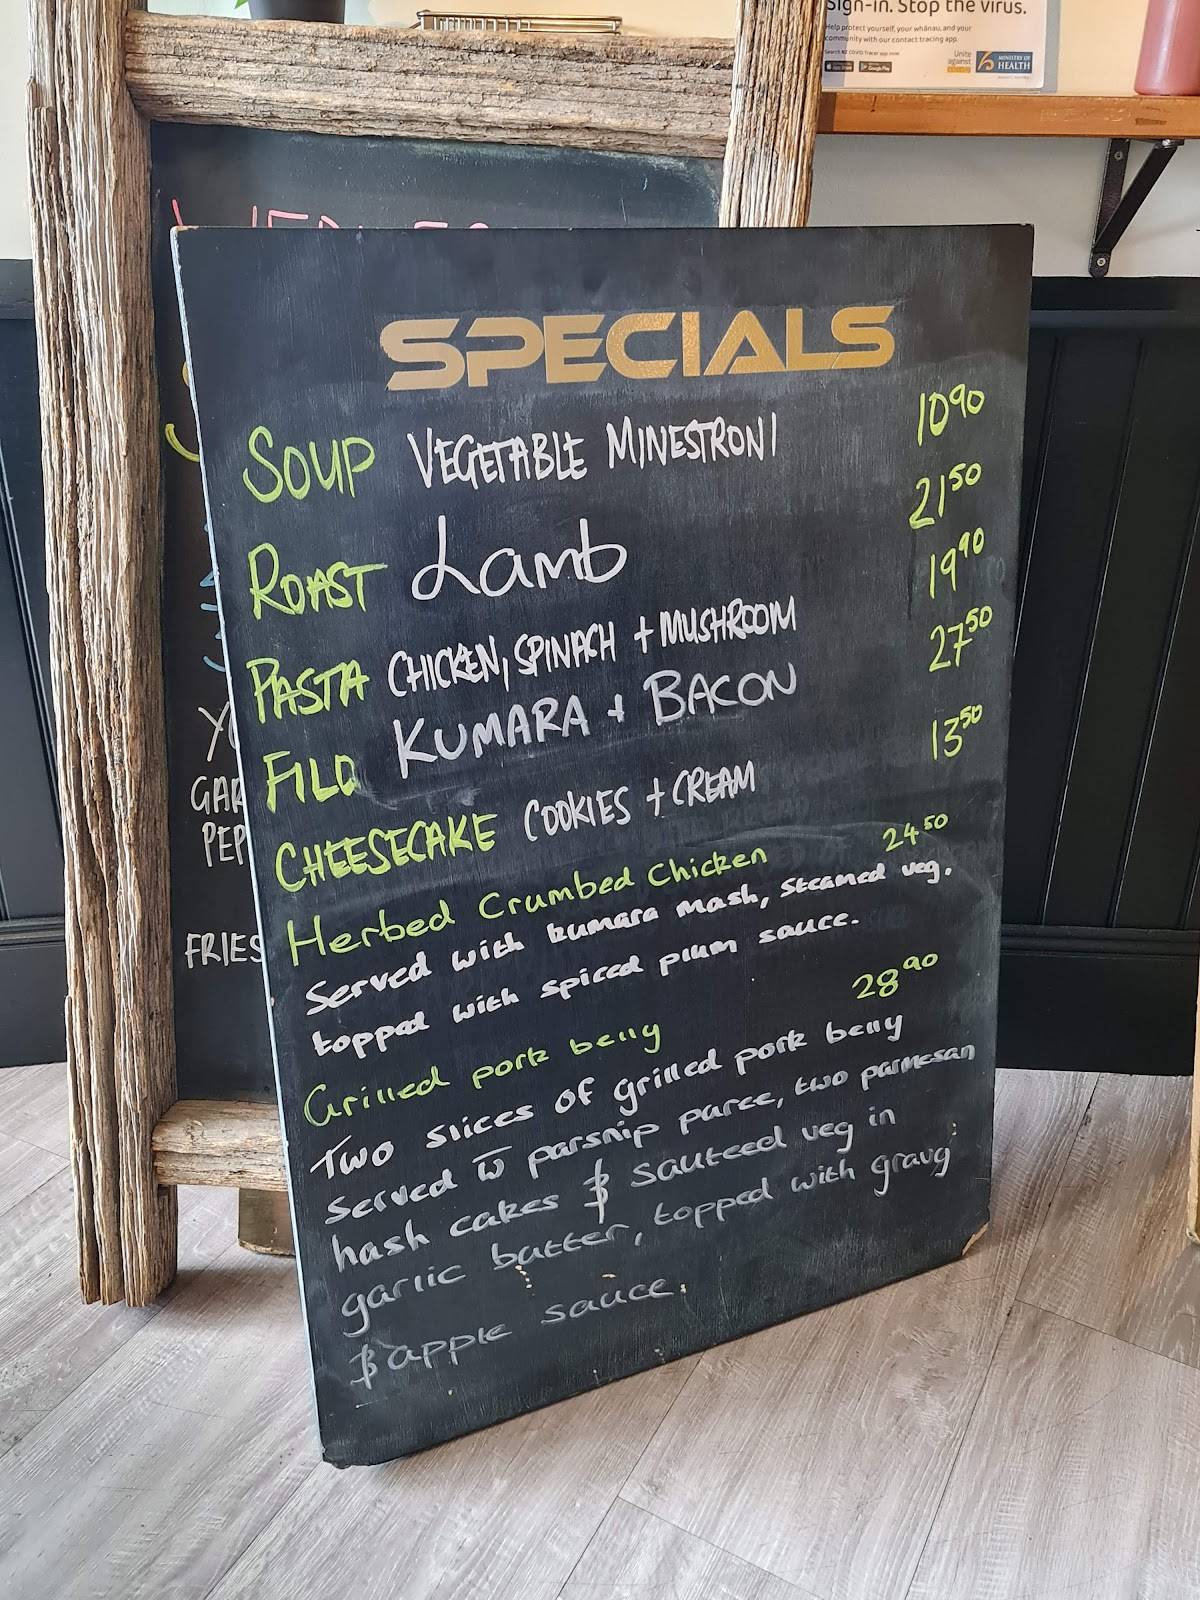 Sign-in. Stop the virus.
Help protect yourself, your whānau, and your
community with our contact tracing app.
Search NZ COVID Tracer app now
Unite
against
MINISTRY OF
HEALTH
SPECIALS
SOUP VEGETABLE MINESTRONI 10.90
ROAST Lamb 21.50
PASTA CHICKEN, SPINACH + MUSHROOM 19.90
FILO KUMARA + BACON 27.50
CHEESECAKE COOKIES + CREAM 13.50
Herbed Crumbed Chicken 24.50
Served with kumara mash, steamed veg.
topped with spiced plum sauce.
Grilled pork belly 28.90
Two slices of grilled pork belly
served w parsnip puree, two parmesan
hash cakes & sauteed veg in
garlic butter, topped with gravy
& apple sauce.
GAR
PEP
FRIES